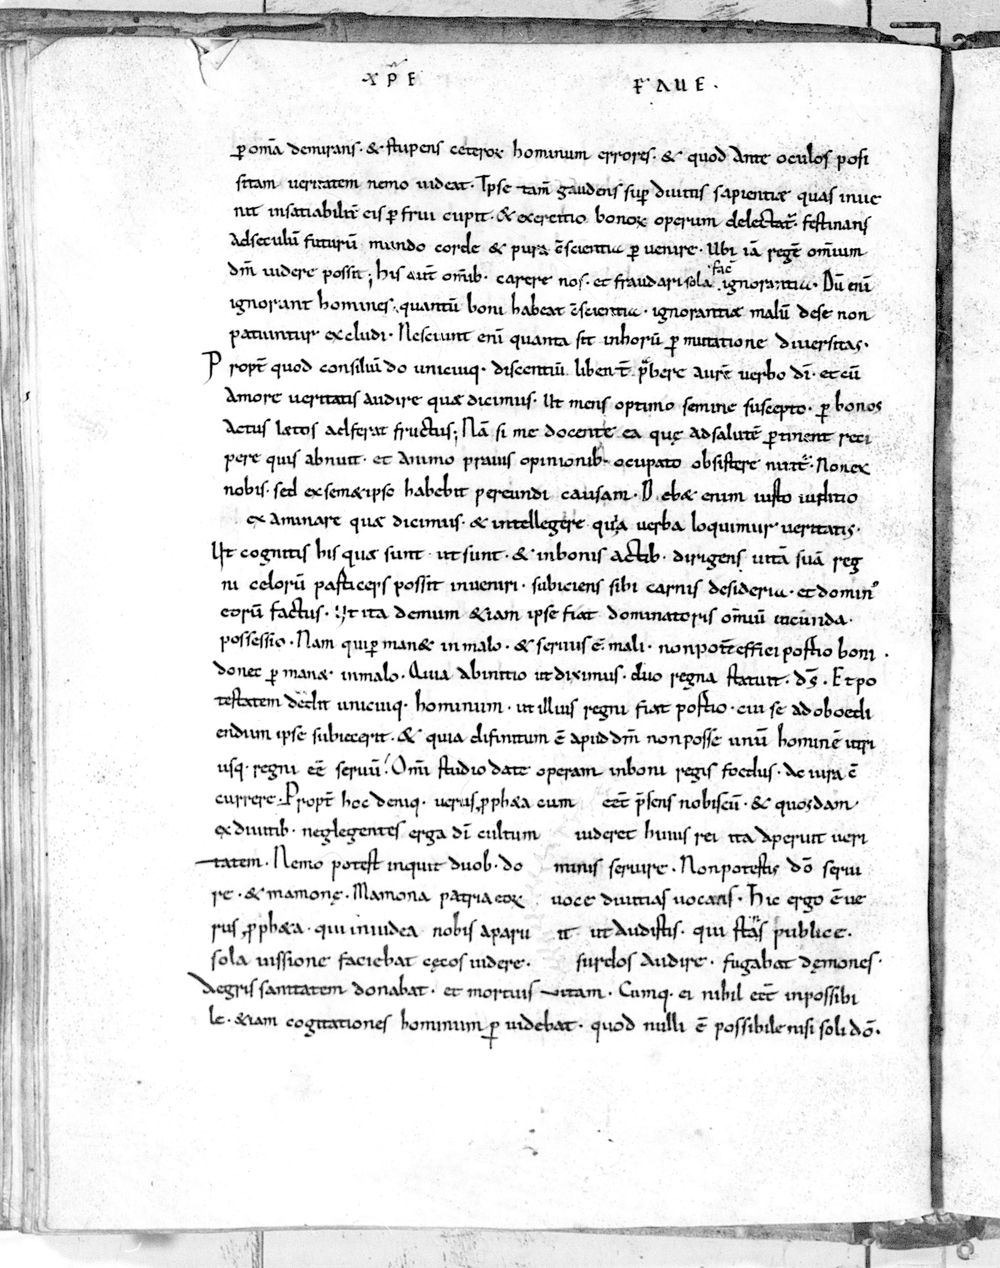 XP̄E FAUE.
ꝑ om̄a demirans· & stupens ceteroꝝ hominum errores· & quod ante oculos posi
sitam ueritatem nemo uideat· Ipse tam̄ gaudens sup̄ diuitiis sapientiæ quas inue
nit insatiabilit̄ eis ꝑfrui cupit· & exercitio bonoꝝ operum delectat᷒· festinans
Adseculū futurū mundo corde & pura c̄scientia ꝑuenire· Ubi iā regē omīum
dm̄ uidere possit; his aut̄ om̄ib· carere nos· et fraudari sola fac̄ ignorantia· Dū enī
ignorant homines· quantū boni habeat c̄scientia· ignorantiæ malū dese non
patiuntur excludi· Nesciunt enī quanta sit inhorū ꝑmutatione diuersitas·
Propt̄ quod consiliū do unicuiq· discentiū liben t̄ p̄bere aurē uerbo dī· et cū
Amore ueritatis audire quæ dicimus· Ut mens optimo semine suscepto· ꝑ bonos
Actus lætos adferat fructus; Nā si me docente ea quę adsalutē ꝑtinent reci
pere quis abnuit· et animo prauis opinionib· ocupato obsistere nitit᷒· Nonex
nobis· sed exsem&ipso habebit pereundi causam· Debæ enim iusto iuditio
examinare quæ dicimus· & intellegere quia uerba loquimur ueritatis·
Ut cognitis his quæ sunt ut sunt· & inbonis actib· dirigens uitā suā reg
ni celorū pasticeps possit inueniri· subiciens sibi carnis desideria· et domin᷒
eorū factus· Ut ita demum &iam ipse fiat dominatoris omīu iucunda·
possessio· Nam qui ꝑman& inmalo· & seruus ē mali· nonpot̄ effici postio boni·
donec ꝑmanæ inmalo· Quia abinitio ut diximus· duo regna statuit· ds̄· Et po
testatem dedit unicuiq· hominum· ut illius regni fiat postio· cui se adoboedi
endum ipse subiecerit· & quia difinitum ē apud dm̄ nonposse unū hominē utri
usq· regni eē seruū! Omī studio date operam inboni regis foedus· ac iura c̄
currere· Propt̄ hoc deniq· uerus ꝓph&a cum eēt p̄sens nobiscū· & quosdam
exdiuitib· neglegentes erga dī cultum uideret huius rei ita aperuit ueri
tatem· Nemo potest inquit duob· do minis seruire· Nonpotestis dō serui
re· & mamonę· Mamona patria eoꝝ uoce diuitias uocans· Hic ergo ē ue
rus ꝓph&a· qui iniudea nobis aparu it ut audistis· qui stās publice·
sola uissione faciebat cęcos uidere· surdos audire· fugabat dęmones·
Aegris sanitatem donabat· et mortuis uitam· Cumq· ei nihil eēt inpossibi
le· &iam cogitationes hominum ꝑuidebat· quod nulli ē possibile nisi soli dō·